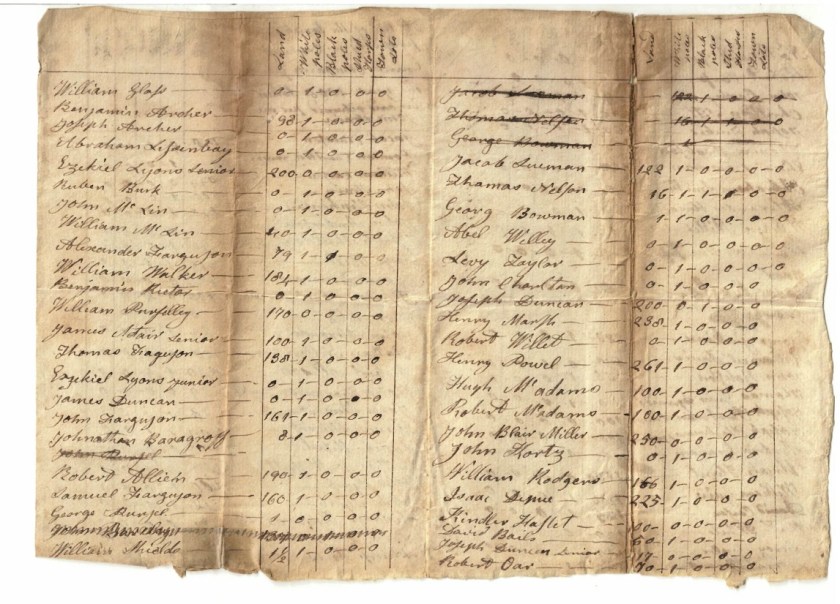 Land White poles Black poles Stud Horses Town Lots
William Glass 0-1-0-0-0
Benjamin Archer
Joseph Archer 98-1-0-0-0
Abraham 0-1-0-0-0
Ezekiel Lyons Senior 200-0-0-0-0
Ruben Burk 0-1-0-0-0
John Mc Lin 0-1-0-0-0
William Mc Lin 40-1-0-0-0
Alexander Farguson 79-1-1-0-0
William Walker 184-1-0-0-0
Benjamin 0-1-0-0-0
William 170-0-0-0-0
James Adair Senior 100-1-0-0-0
Thomas Faguson 138-1-0-0-0
Ezekiel Lyons junior 0-1-0-0-0
James Duncan 0-1-0-0-0
John Farguson 161-1-0-0-0
Johnathan 8-1-0-0-0
John
Robert 190-1-0-0-0
Samuel Farguson 160-1-0-0-0
George 1-0-0-0-0
John
William Shields 1½-1-0-0-0
Land White poles Black poles Stud Horses Town Lots
Jacob 122-1-0-0-0
Thomas Nelson 16-1-1-0-0
George Bowman 1
Jacob 122-1-0-0-0
Thomas Nelson 16-1-1-1-0-0
Georg Bowman 1-1-0-0-0-0
Abel Willey 0-1-0-0-0
Levy Taylor 0-1-0-0-0
John Charlton 0-1-0-0-0
Joseph Duncan 200-0-1-0-0
Henry Marsh 238-1-0-0-0
Robert Willet 0-1-0-0-0
Henry Powel 261-1-0-0-0
Hugh Mc adams 100-1-0-0-0
Robert Mc adams 100-1-0-0-0
John Blair Miller 230-0-0-0-0
John Hortz 0-1-0-0-0
William Rodgers 166-1-0-0-0
Isaac Depue 225-1-0-0-0
Haslet 100-0-0-0-0
David 60-1-0-0-0
Joseph Duncan Senior 17-0-0-0-0
Robert Oar 70-1-0-0-0